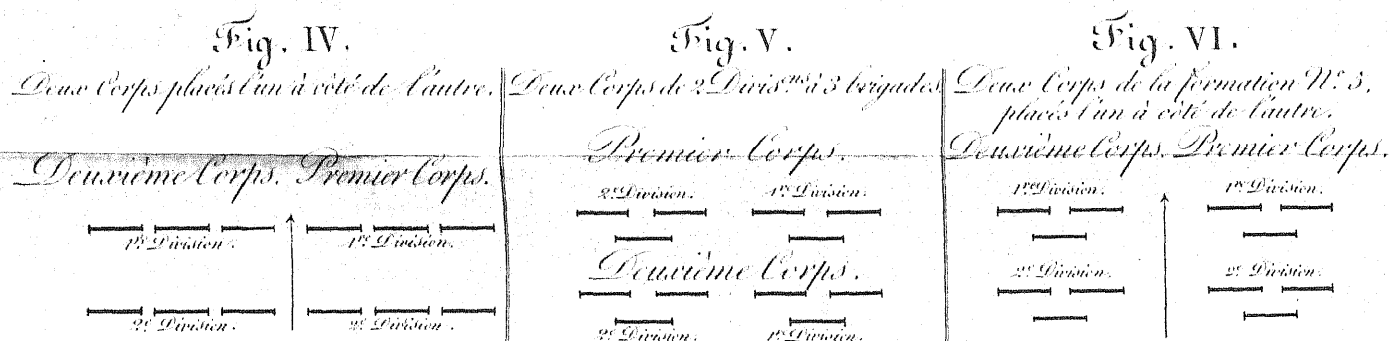 Fig. IV.
Deux Corps placés l'un à côté de l'autre.
Deuxième Corps. Premier Corps.
1re Division. 1re Division.
2e Division. 2e Division.
Fig. V.
Deux Corps de 2 Divisons à 3 brigades
Premier Corps.
2e Division. 1re Division.
Deuxième Corps.
2e Division. 1re Division.
Fig. VI.
Deux Corps de la formation No. 5,
placés l'un à côté de l'autre.
Deuxième Corps. Premier Corps.
1re Division. 1re Division.
2e Division. 2e Division.